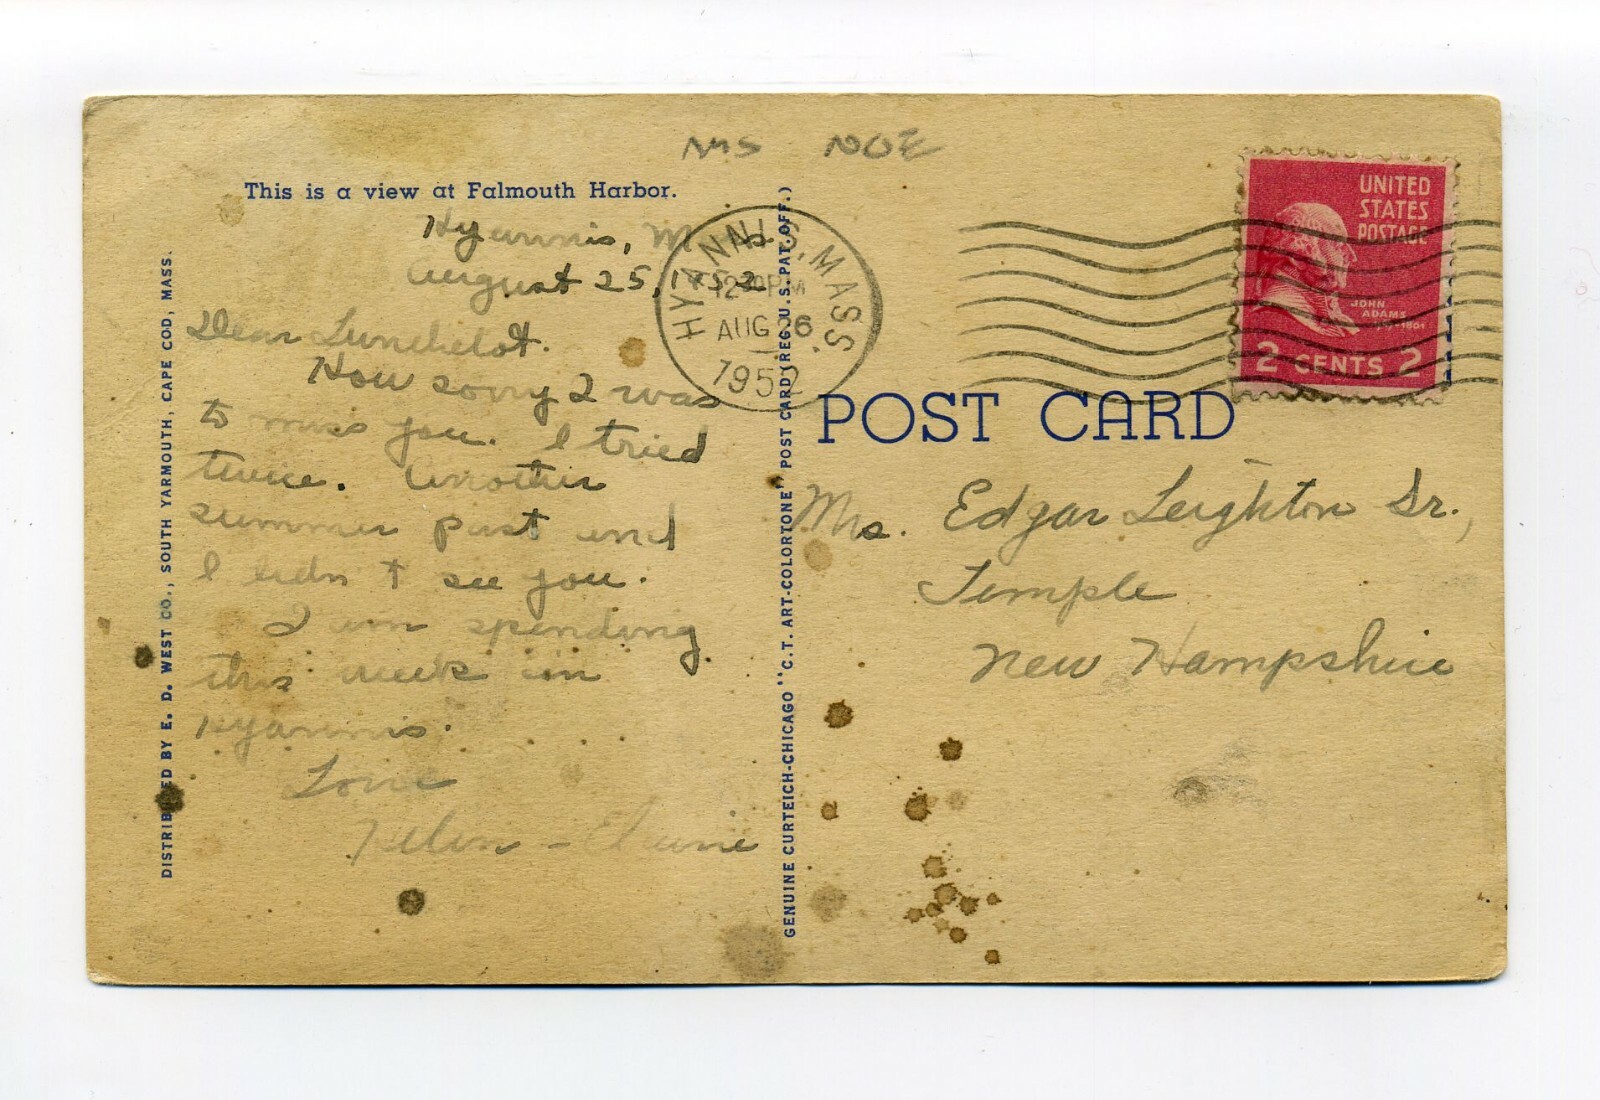 This is a view at Falmouth Harbor.
Hyannis, Mass.
August 25, 1952
Dear
How sorry I was
to miss you. I tried
twice. Another
summer past and
I didn't see you.
I am spending
this week in
Hyannis.
Love
Elaine
DISTRIBUTED BY E. D. WEST CO., SOUTH YARMOUTH, CAPE COD, MASS.
GENUINE CURTEICH-CHICAGO "C.T. ART-COLORTONE" POST CARD (REG. U.S. PAT. OFF.)
HYANNIS, MASS.
PM
AUG 26
1952
UNITED
STATES
POSTAGE
JOHN
ADAMS
1801
2 CENTS 2
POST CARD
Mrs. Edgar Leighton Sr.,
Temple
New Hampshire